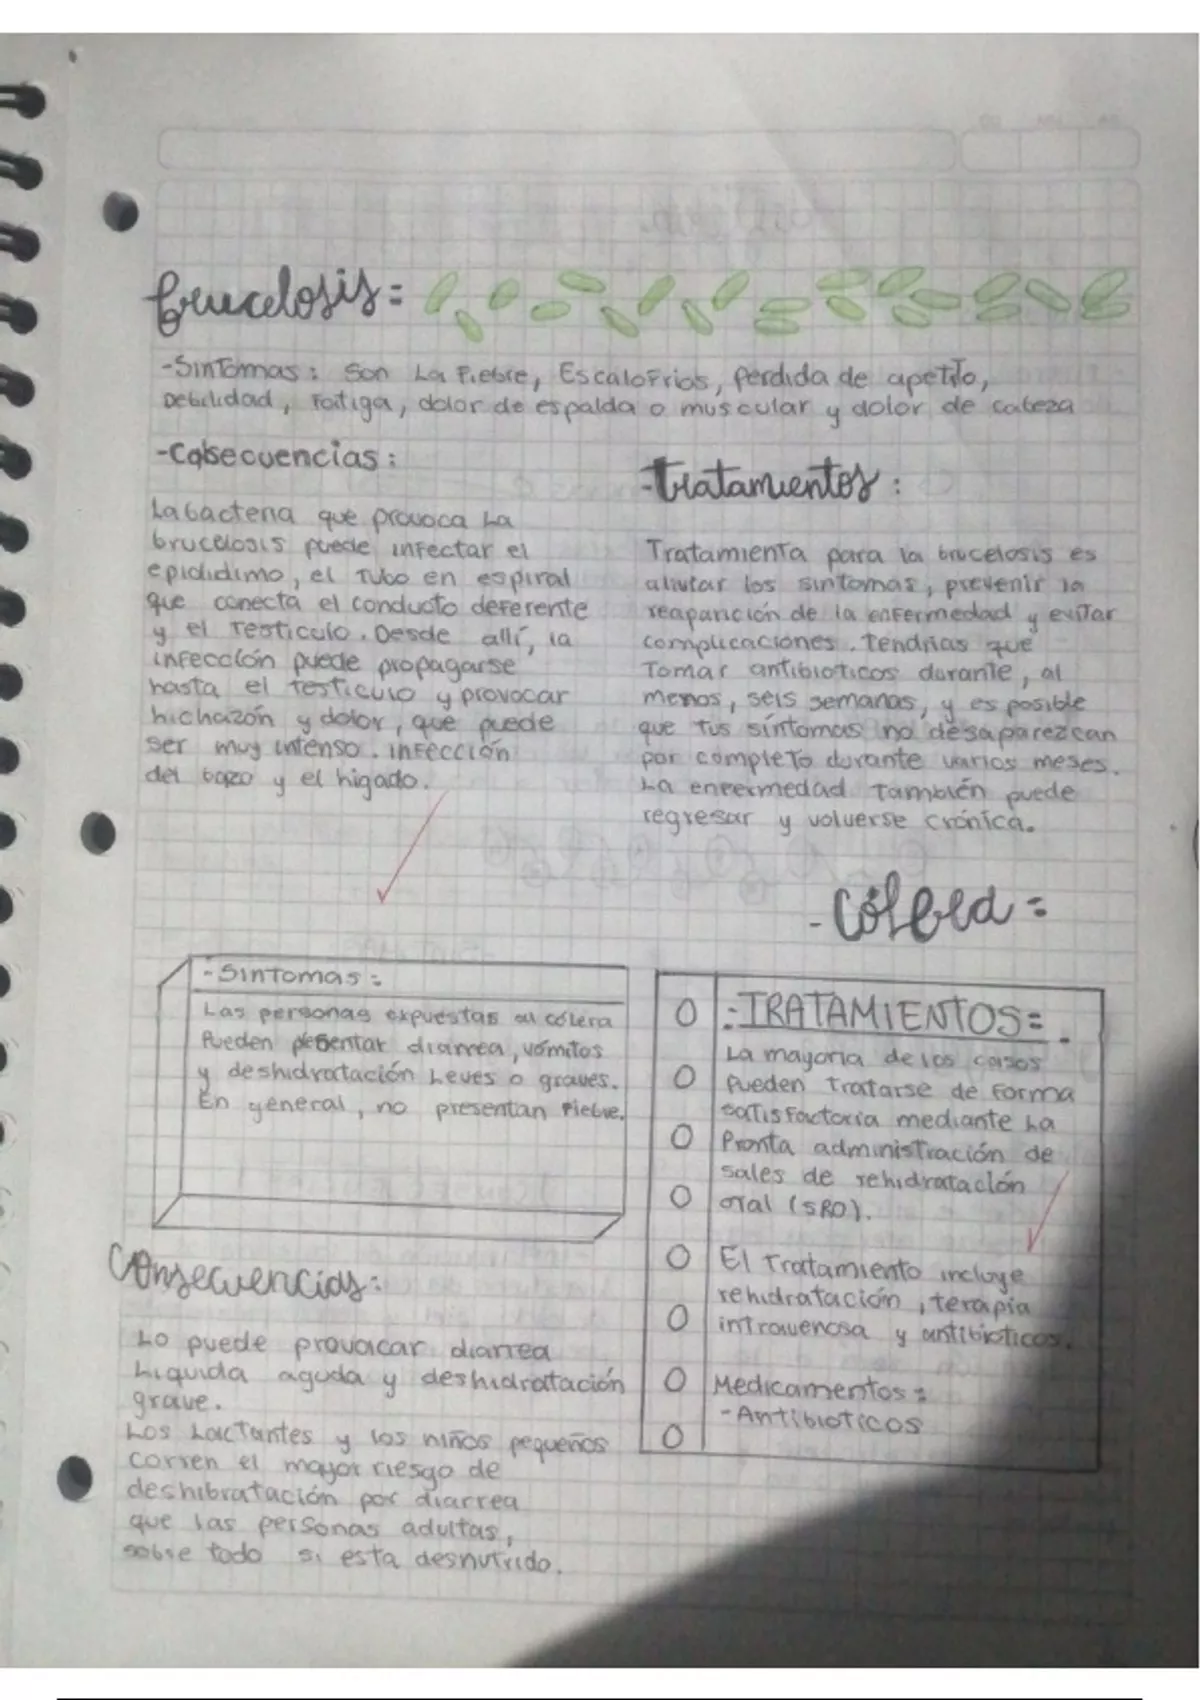 Brucelosis:
-Sintomas: Son La Fiebre, Escalofrios, perdida de apetito,
Debilidad, Fatiga, dolor de espalda o muscular y dolor de cabeza
-Cosecuencias:
La bacteria que provoca La
brucelosis puede infectar el
epididimo, el Tubo en espiral
que conecta el conducto deferente
y el Testiculo. Desde allí, la
infección puede propagarse
hasta el Testiculo y provocar
hichazón y dolor, que puede
ser muy intenso. infección
del bazo y el higado.
-Tratamientos:
Tratamienta para la brucelosis es
alivtar los sintomas, prevenir la
reaparición de la enfermedad y evitar
complicaciones. Tendrias que
Tomar antibioticos durante, al
menos, seis semanas, y es posible
que Tus síntomas no desaparezcan
por completo durante varios meses.
La enfermedad También puede
regresar y volverse crónica.
-Cólera=
-Sintomas:
Las personas expuestas al cólera
Pueden presentar diarrea, vómitos
y deshidratación Leves o graves.
En general, no presentan Fiebre.
Consecuencias:
Lo puede provacar diarrea
Liquida aguda y deshidratación
grave.
Los Lactantes y los niños pequeños
corren el mayor riesgo de
deshibratación por diarrea
que las personas adultas,
sobre todo si esta desnutrido.
-TRATAMIENTOS=
La mayoria de los casos
Pueden Tratarse de Forma
satisfactoria mediante La
Pronta administración de
sales de rehidratación
oral (SRO).
El Tratamiento incluye
rehidratación, terapia
intravenosa y antibioticos.
Medicamentos:
-Antibioticos